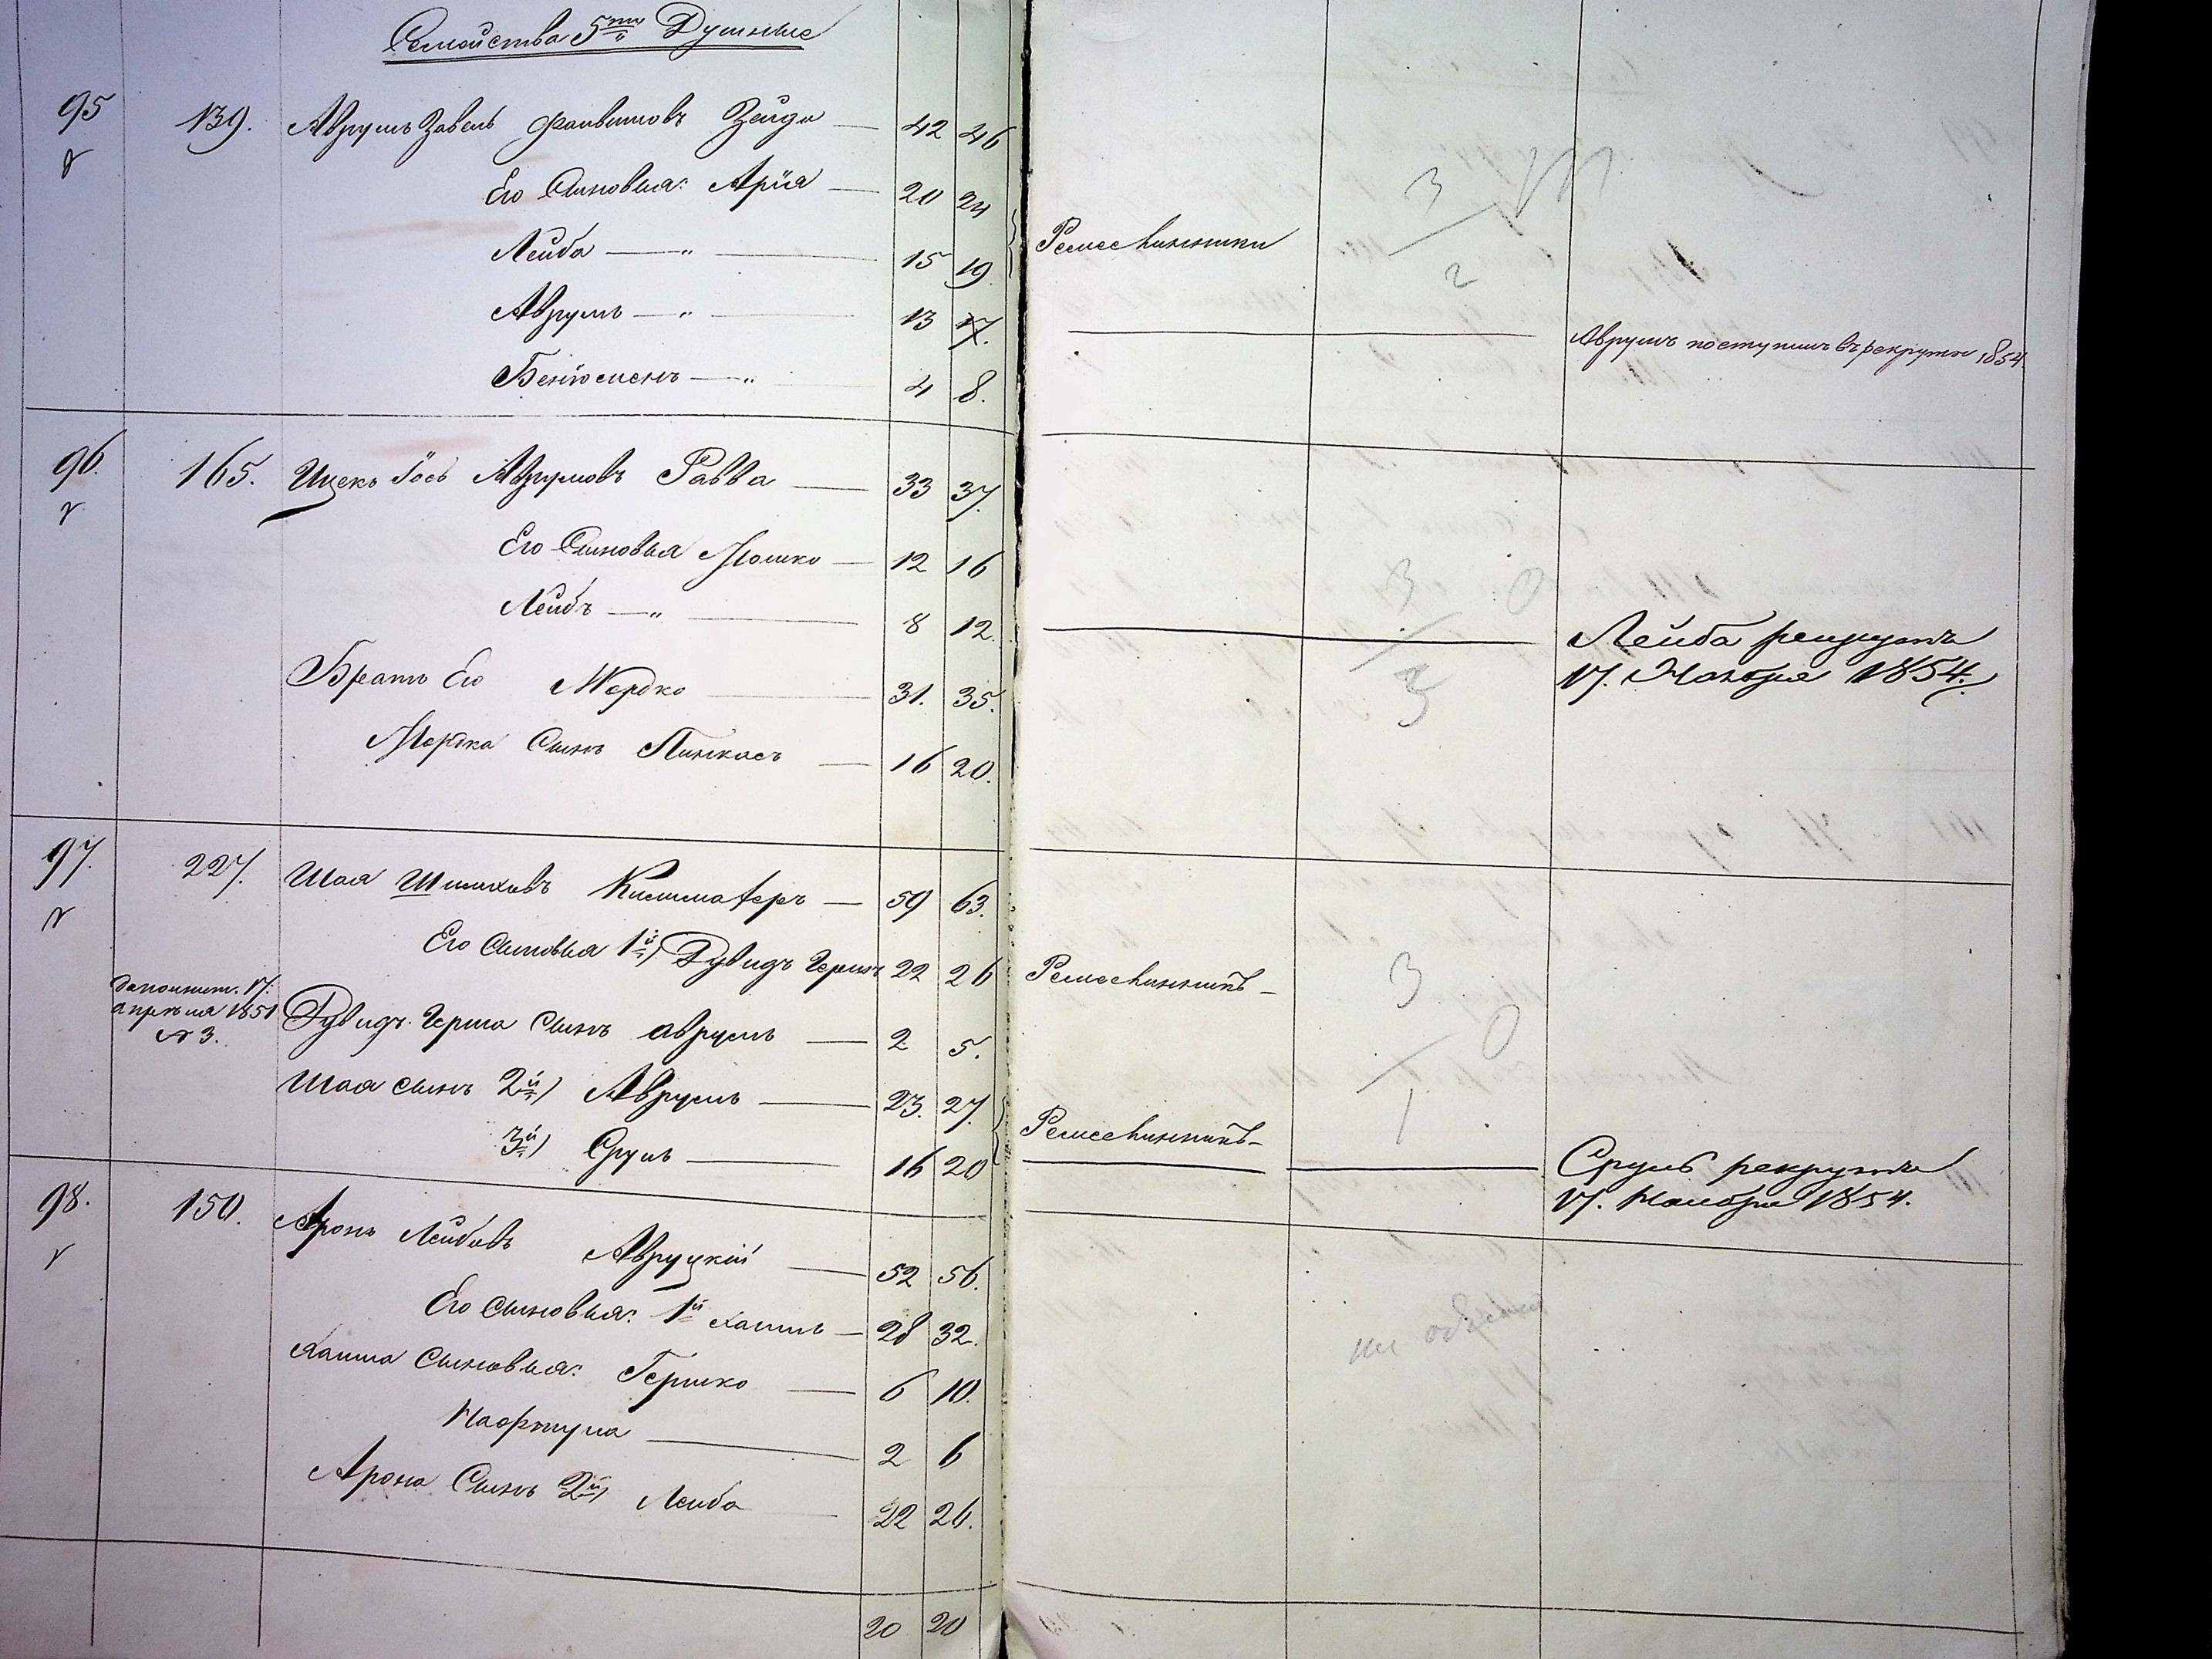 Семейства 5ти Душные
95 139. Аврумъ Завель Файвишовъ Зейде — 42 46
Его Сыновья: Арія — 20 24
Лейба — " — 15 19 Ремесленники
Аврумъ — " — 13 17. Аврумъ поступилъ въ рекруты 1854.
Беніоменъ — " 4 8.
96. 165. Ицекъ Іось Аврумовъ Равва — 33 37.
Его Сыновья Мошко — 12 16
Лейбъ — " — 8 12. Лейба рекрутъ
17. Ноября 1854.
Братъ Его Мордко — 31. 35.
Мордка Сынъ Пинкасъ — 16 20.
97. 227. Шая Шмиховъ — 59 63.
Его Сыновья 1й) Дувидъ Гершъ 22 26 Ремесленникъ —
дополнит. 17.
апрѣля 1851
№ 3.
Дувидъ Герша Сынъ Аврумъ — 2 5.
Шая сынъ 2й) Аврумъ — 23. 27. Ремесленникъ —
3й) Сруль — 16 20 Сруль рекрутъ
17. Ноября 1854.
98. 150. Аронъ Лейбовъ Авруцкій — 52 56.
Его сыновья: 1й Хаимъ — 28 32.
Хаима Сыновья: Гершко — 6 10.
Нафтула — 2 6
Арона Сынъ 2й) Лейба 22 26.
20 20
3
2
3 0
3
3 0
1